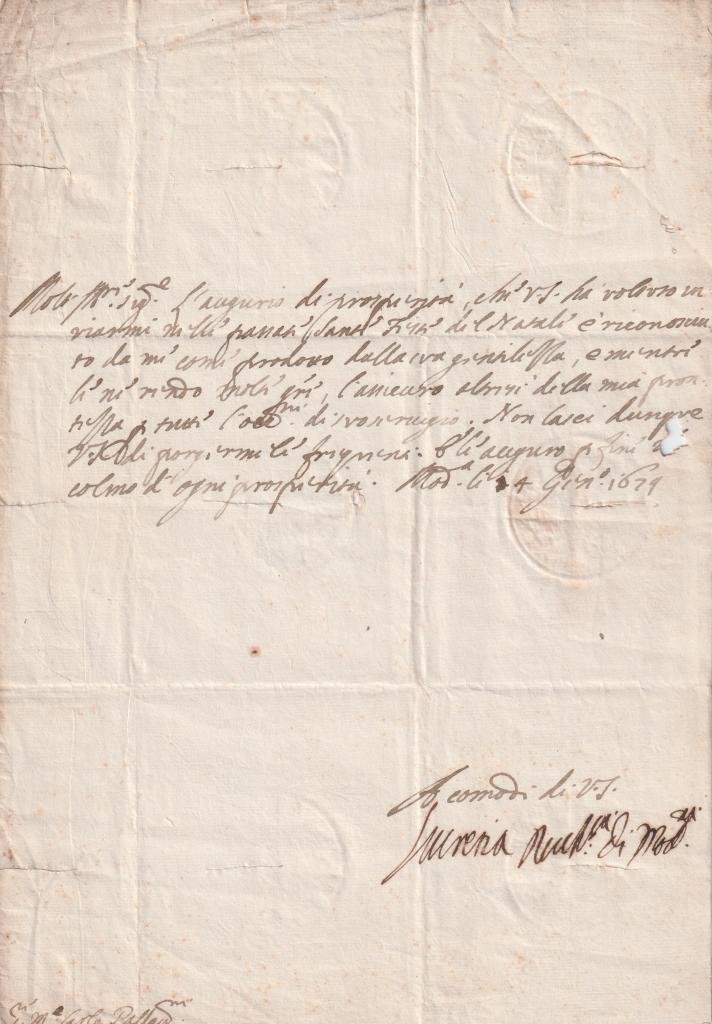 Molto Ill.re Sig.re L'augurio di prosperità, che V.S. ha voluto in
viarmi nelle passate Sante Feste del Natale è riconosciu
to da me come prodotto dalla sua gentilezza, e mentre
le ne rendo molte gr̃e, l'assicuro altresì della mia pron
tezza tutte l'occ.ni di suo servigio. Non lasci dunque
V.S. di porgermele frequenti. E le auguro fine
colmo d'ogni prosperità. Mod.a li 24 Gen.o 1679
A comodi di V.S.
Lucrezia Duch.ssa di Mod.na
Carlo